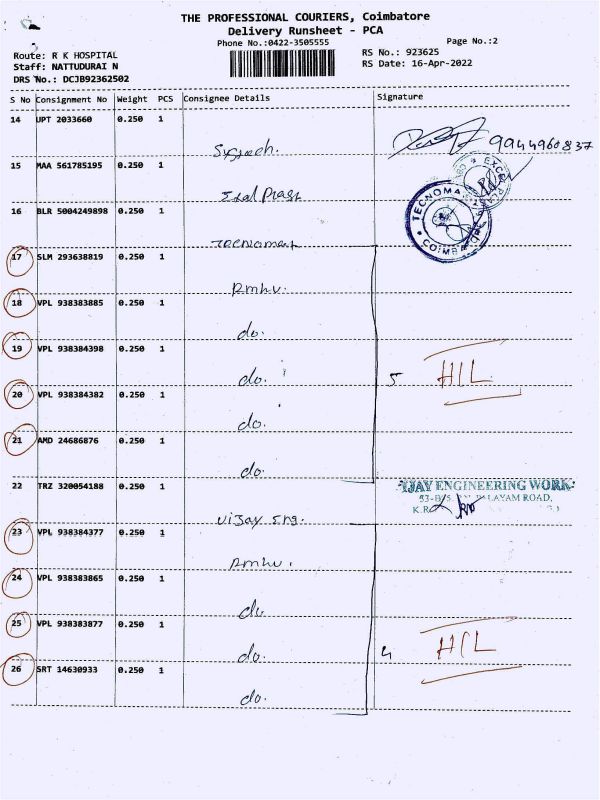 THE PROFESSIONAL COURIERS, Coimbatore
Delivery Runsheet - PCA
Phone No.:0422-3505555
Page No.:2
Route: R K HOSPITAL
RS No.: 923625
Staff: NATTUDURAI N
RS Date: 16-Apr-2022
DRS No.: DCJB92362502
S No Consignment No Weight PCS Consignee Details Signature
14 UPT 2033660 0.250 1
9944960837
15 MAA 561785195 0.250 1
16 BLR 5004249898 0.250 1
TECNOMA
COIMB
17 SLM 293638819 0.250 1
Rmhv.
18 VPL 938383885 0.250 1
do.
19 VPL 938384398 0.250 1
do. 5 HIL
20 VPL 938384382 0.250 1
do.
21 AMD 24686876 0.250 1
do.
22 TRZ 320054188 0.250 1
IJAY ENGINEERING WORK
ROAD,
Vijay Eng.
23 VPL 938384377 0.250 1
Rmhv.
24 VPL 938383865 0.250 1
do.
25 VPL 938383877 0.250 1
do. 4 HIL
26 SRT 14630933 0.250 1
do.